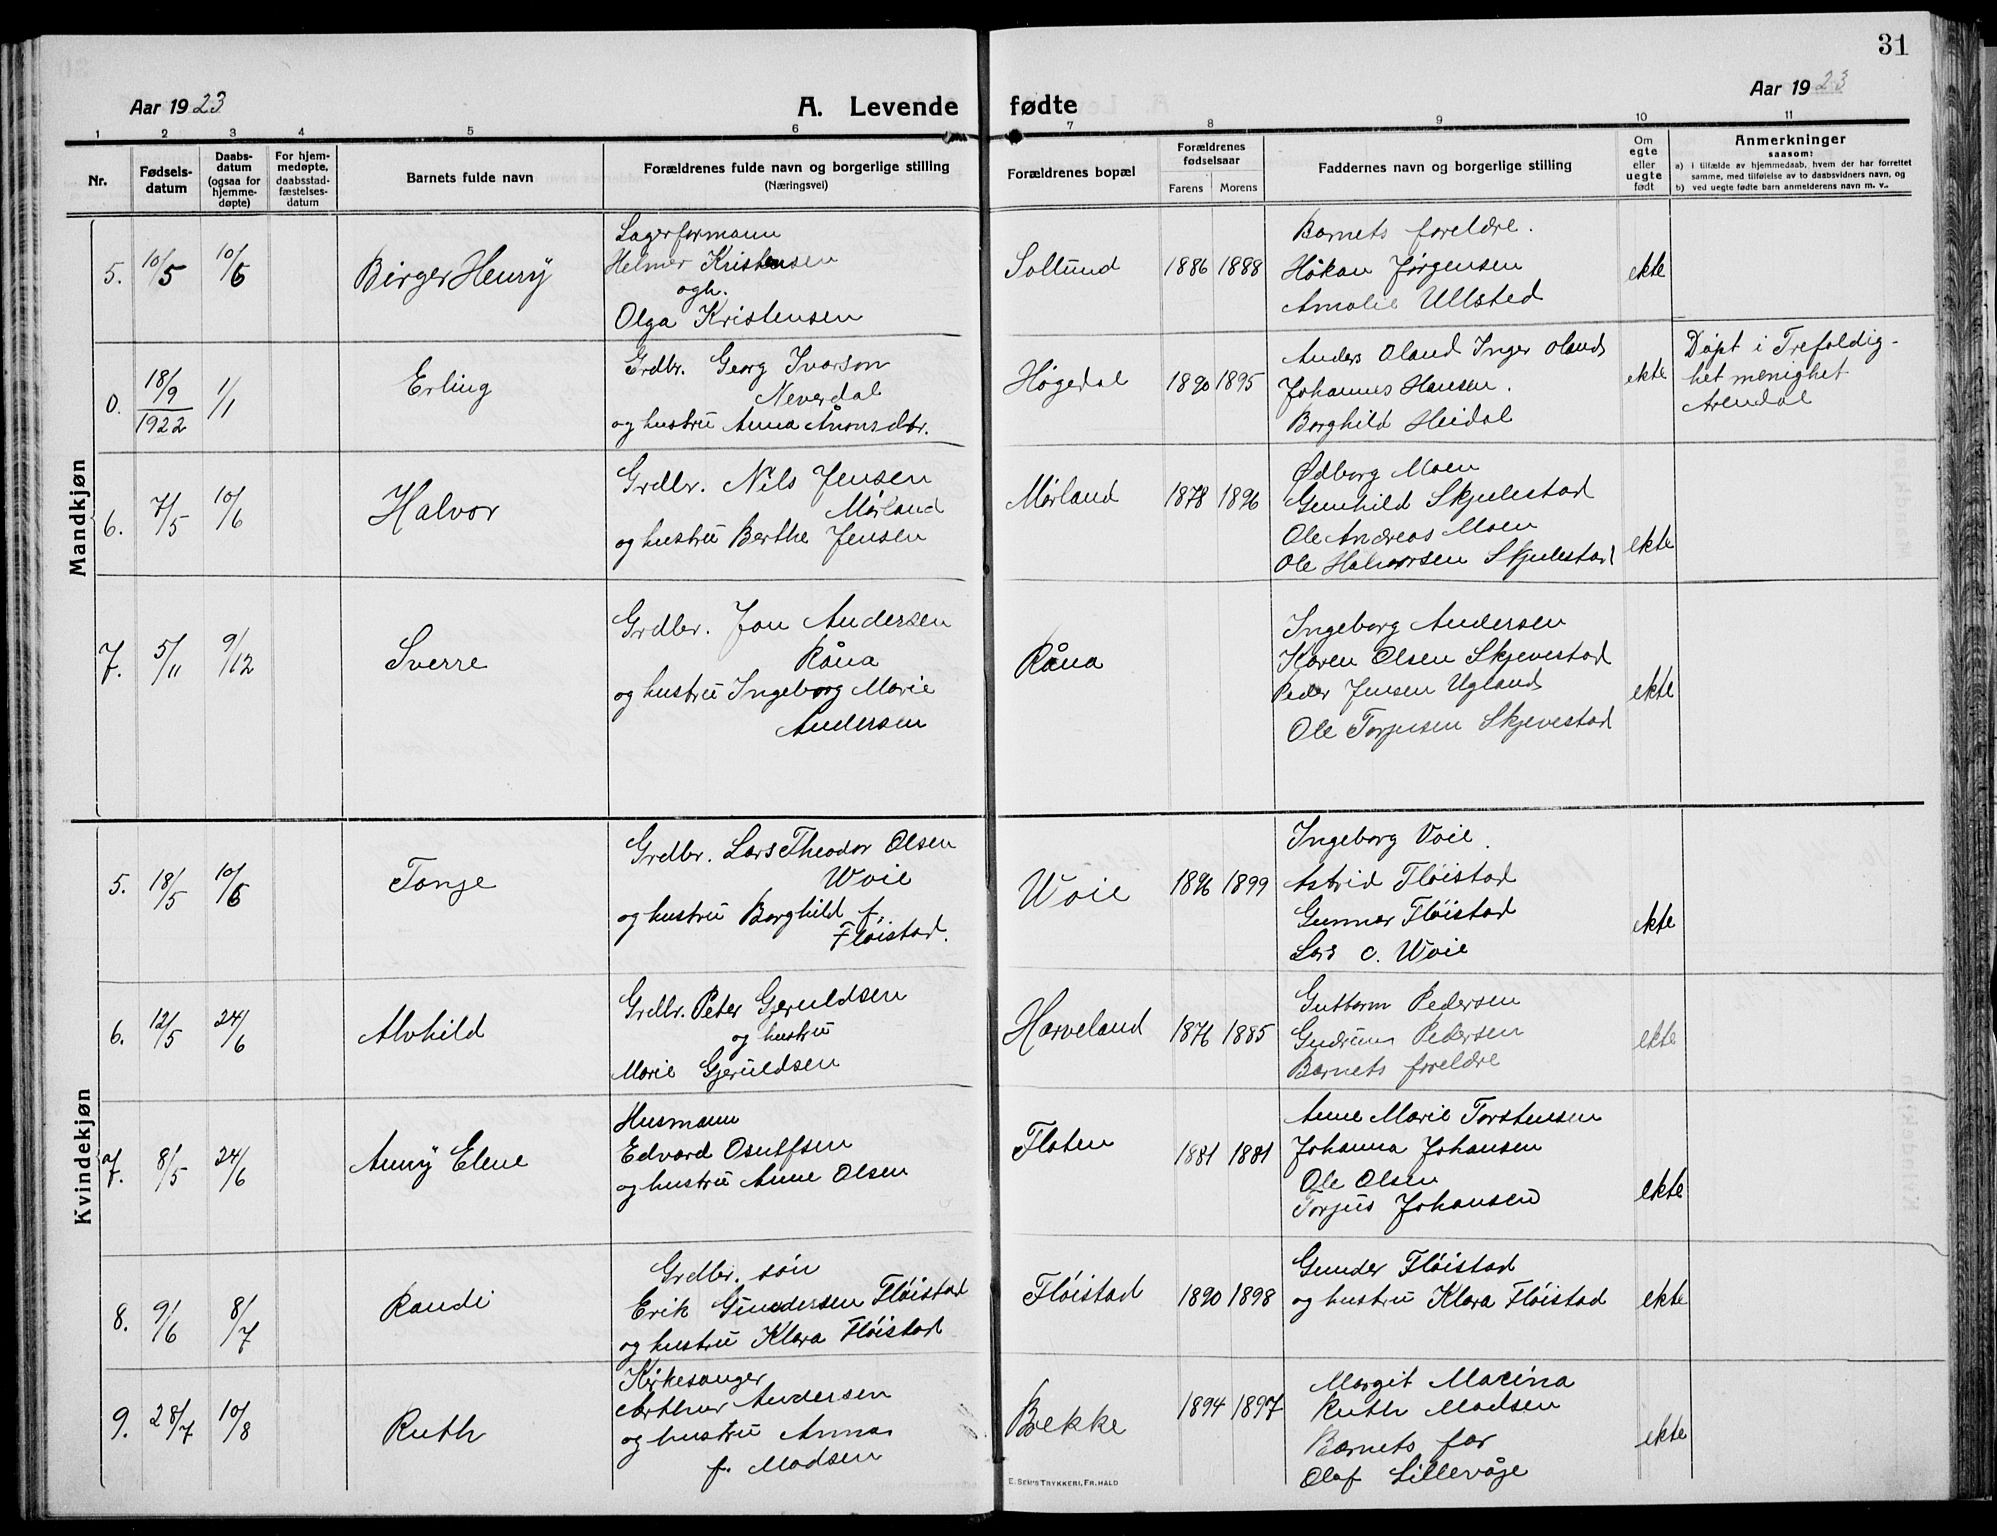 31
Aar 1923
A. Levende fødte
Aar 1923
1 2 3 4 5 6 7 8 9 10 11
Nr.
Fødsels-
datum
Daabs-
datum
(ogsaa for
hjemme-
døpte)
For hjem-
medøpte,
daabsstad-
fæstelses-
datum
Barnets fulde navn
Forældrenes fulde navn og borgerlige stilling
(Næringsvei)
Forældrenes bopæl
Forældrenes
fødselsaar
Farens Morens
Faddernes navn og borgerlige stilling
Om
egte
eller
uegte
født
Anmerkninger
saasom:
a) i tilfælde av hjemmedaab, hvem der har forrettet
samme, med tilføielse av to daabsvidners navn, og
b) ved uegte fødte barn anmelderens navn m. v..
Mandkjøn
5. 10/5 10/6 Birger Henry
Lagerformann
Helmer Kristensen
ogh.
Olga Kristensen
Sollund 1886 1888
Barnets foreldre.
Håkan Jørgensen
Amalie Ullsted
ekte
0. 18/9
1922
1/1 Erling
Grdbr. Georg Ivarson
Neverdal
og hustru Anna Aronsdtr.
Høgedal 1890 1895
Anders Oland Inger Oland
Johannes Hansen.
Borghild Heidal
ekte
Døpt i Trefoldig-
het menighet
Arendal
6. 7/5 10/6 Halvor
Grdbr. Nils Jensen
Mørland
og hustru Berthe Jensen
Mørland 1878 1896
Ødborg Moen
Gunhild Skjulestad
Ole Andreas Moen
Ole Halvorsen Skjulestad
ekte
7. 5/11 9/12 Sverre
Grdbr. Jon Andersen
Råna
og hustru Ingeborg Marie
Andersen
Råna
Ingeborg Andersen
Karen Olsen Skjevestad
Peder Jensen Ugland
Ole Torjusen Skjevestad
ekte
Kvindekjøn
5. 18/5 10/6 Tonje
Grdbr. Lars Theodor Olsen
Woie
og hustru Borghild f.
Fløistad.
Woie 1896 1899
Ingeborg Voie.
Astrid Fløistad
Gunnar Fløistad
Lars O. Woie
ekte
6. 12/5 24/6 Alvhild
Grdbr. Peter Gjeruldsen
og hustru
Marie Gjeruldsen
Harveland 1876 1885
Guttorm Pedersen
Gudrun Pedersen
Barnets foreldre
ekte
7. 8/5 24/6 Anny Elene
Husmann
Edvard Osulfsen
og hustru Anne Olsen
Flaten 1881 1881
Anne Marie Torstensen
Johanna Johansen
Ole Olsen
Torjus Johansen
ekte
8. 9/6 8/7 Randi
Grdbr. søn
Erik Gundersen Fløistad
og hustru Klara Fløistad
Fløistad 1890 1898
Gunder Fløistad
og hustru Klara Fløistad
ekte
9. 28/7 10/8 Ruth
Kirkesanger
Arthur Andersen
og hustru Anna
f. Madsen
Bekke 1894 1897
Margit Macina
Ruth Madsen
Barnets far
Olaf Lillevåje
ekte
E. SEM'S TRYKKERI, FR.HALD